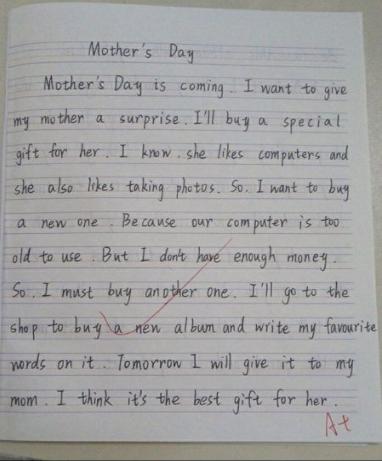 Mother's Day
Mother's Day is coming. I want to give
my mother a surprise. I'll buy a special
gift for her. I know. she likes computers and
she also likes taking photos. So. I want to buy
a new one. Because our computer is too
old to use. But I don't have enough money.
So. I must buy another one. I'll go to the
shop to buy a new album and write my favourite
words on it. Tomorrow I will give it to my
mom. I think it's the best gift for her.
A+